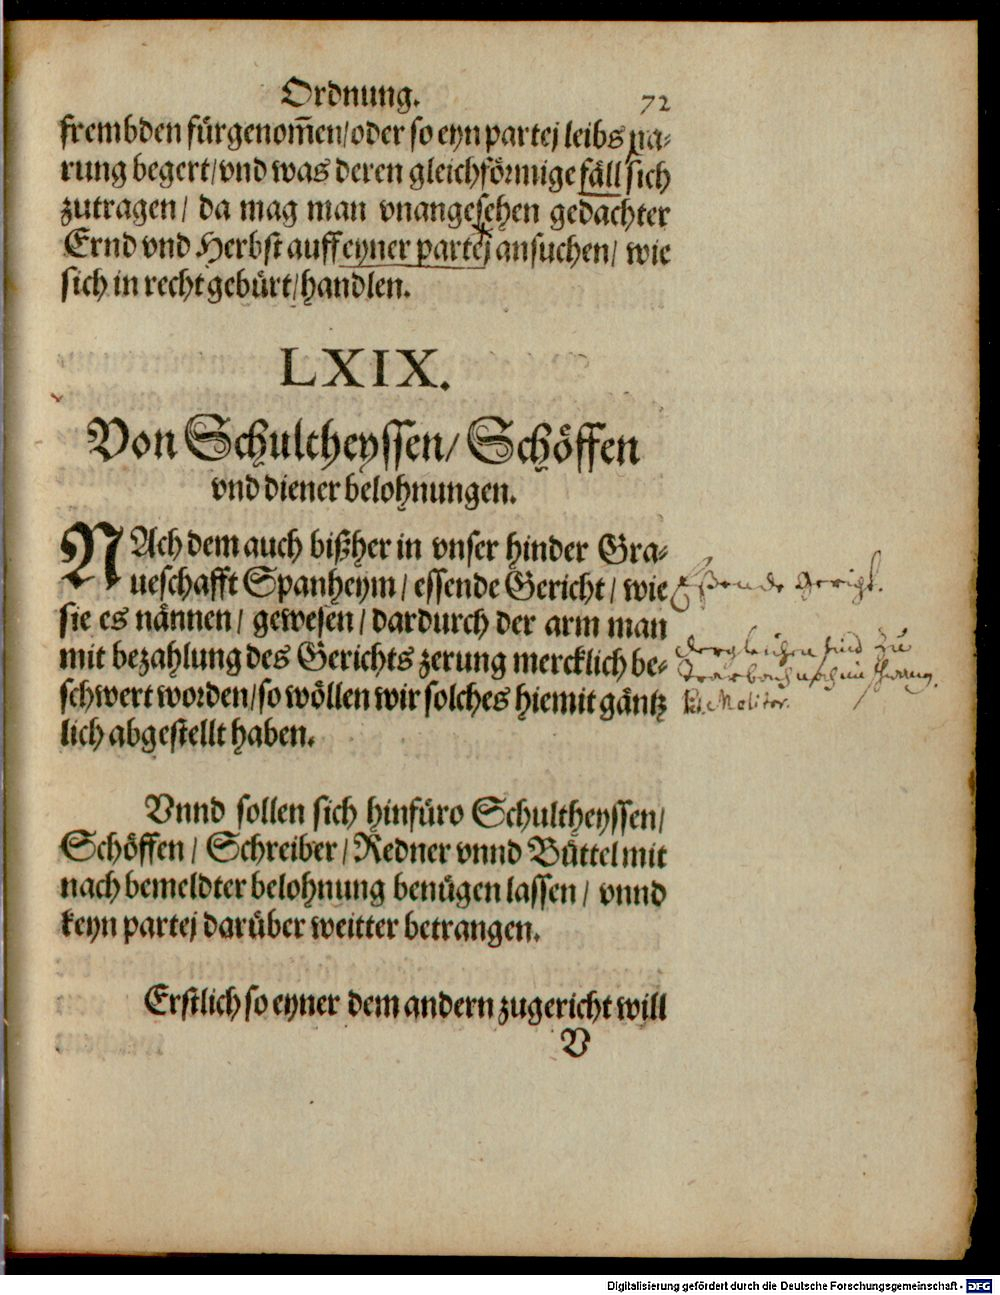 Ordnung. 72
frembden fürgenom̄en/oder so eyn partej leibs na⸗
rung begert/vnd was deren gleichförmige fäll sich
zutragen/ da mag man vnangesehen gedachter
Ernd vnd Herbst auff eyner partej ansuchen/ wie
sich in recht gebürt/handlen.
LXIX.
Von Schultheyssen/ Schöffen
vnd diener belohnungen.
NAch dem auch bißher in vnser hinder Gra⸗
ueschafft Spanheym/ essende Gericht/ wie
Eßende gericht.
sie es nännen/ gewesen/ dardurch der arm man
mit bezahlung des Gerichts zerung mercklich be⸗
schwert worden/so wöllen wir solches hiemit gäntz
lich abgestellt haben.
dergleichen sind zu
Trarbach noch im schwang.
Molitor.
Vnnd sollen sich hinfüro Schultheyssen/
Schöffen/ Schreiber/ Redner vnnd Büttel mit
nach bemeldter belohnung benügen lassen/ vnnd
keyn partej darüber weitter betrangen.
Erstlich so eyner dem andern zugericht will
V
Digitalisierung gefördert durch die Deutsche Forschungsgemeinschaft - DFG